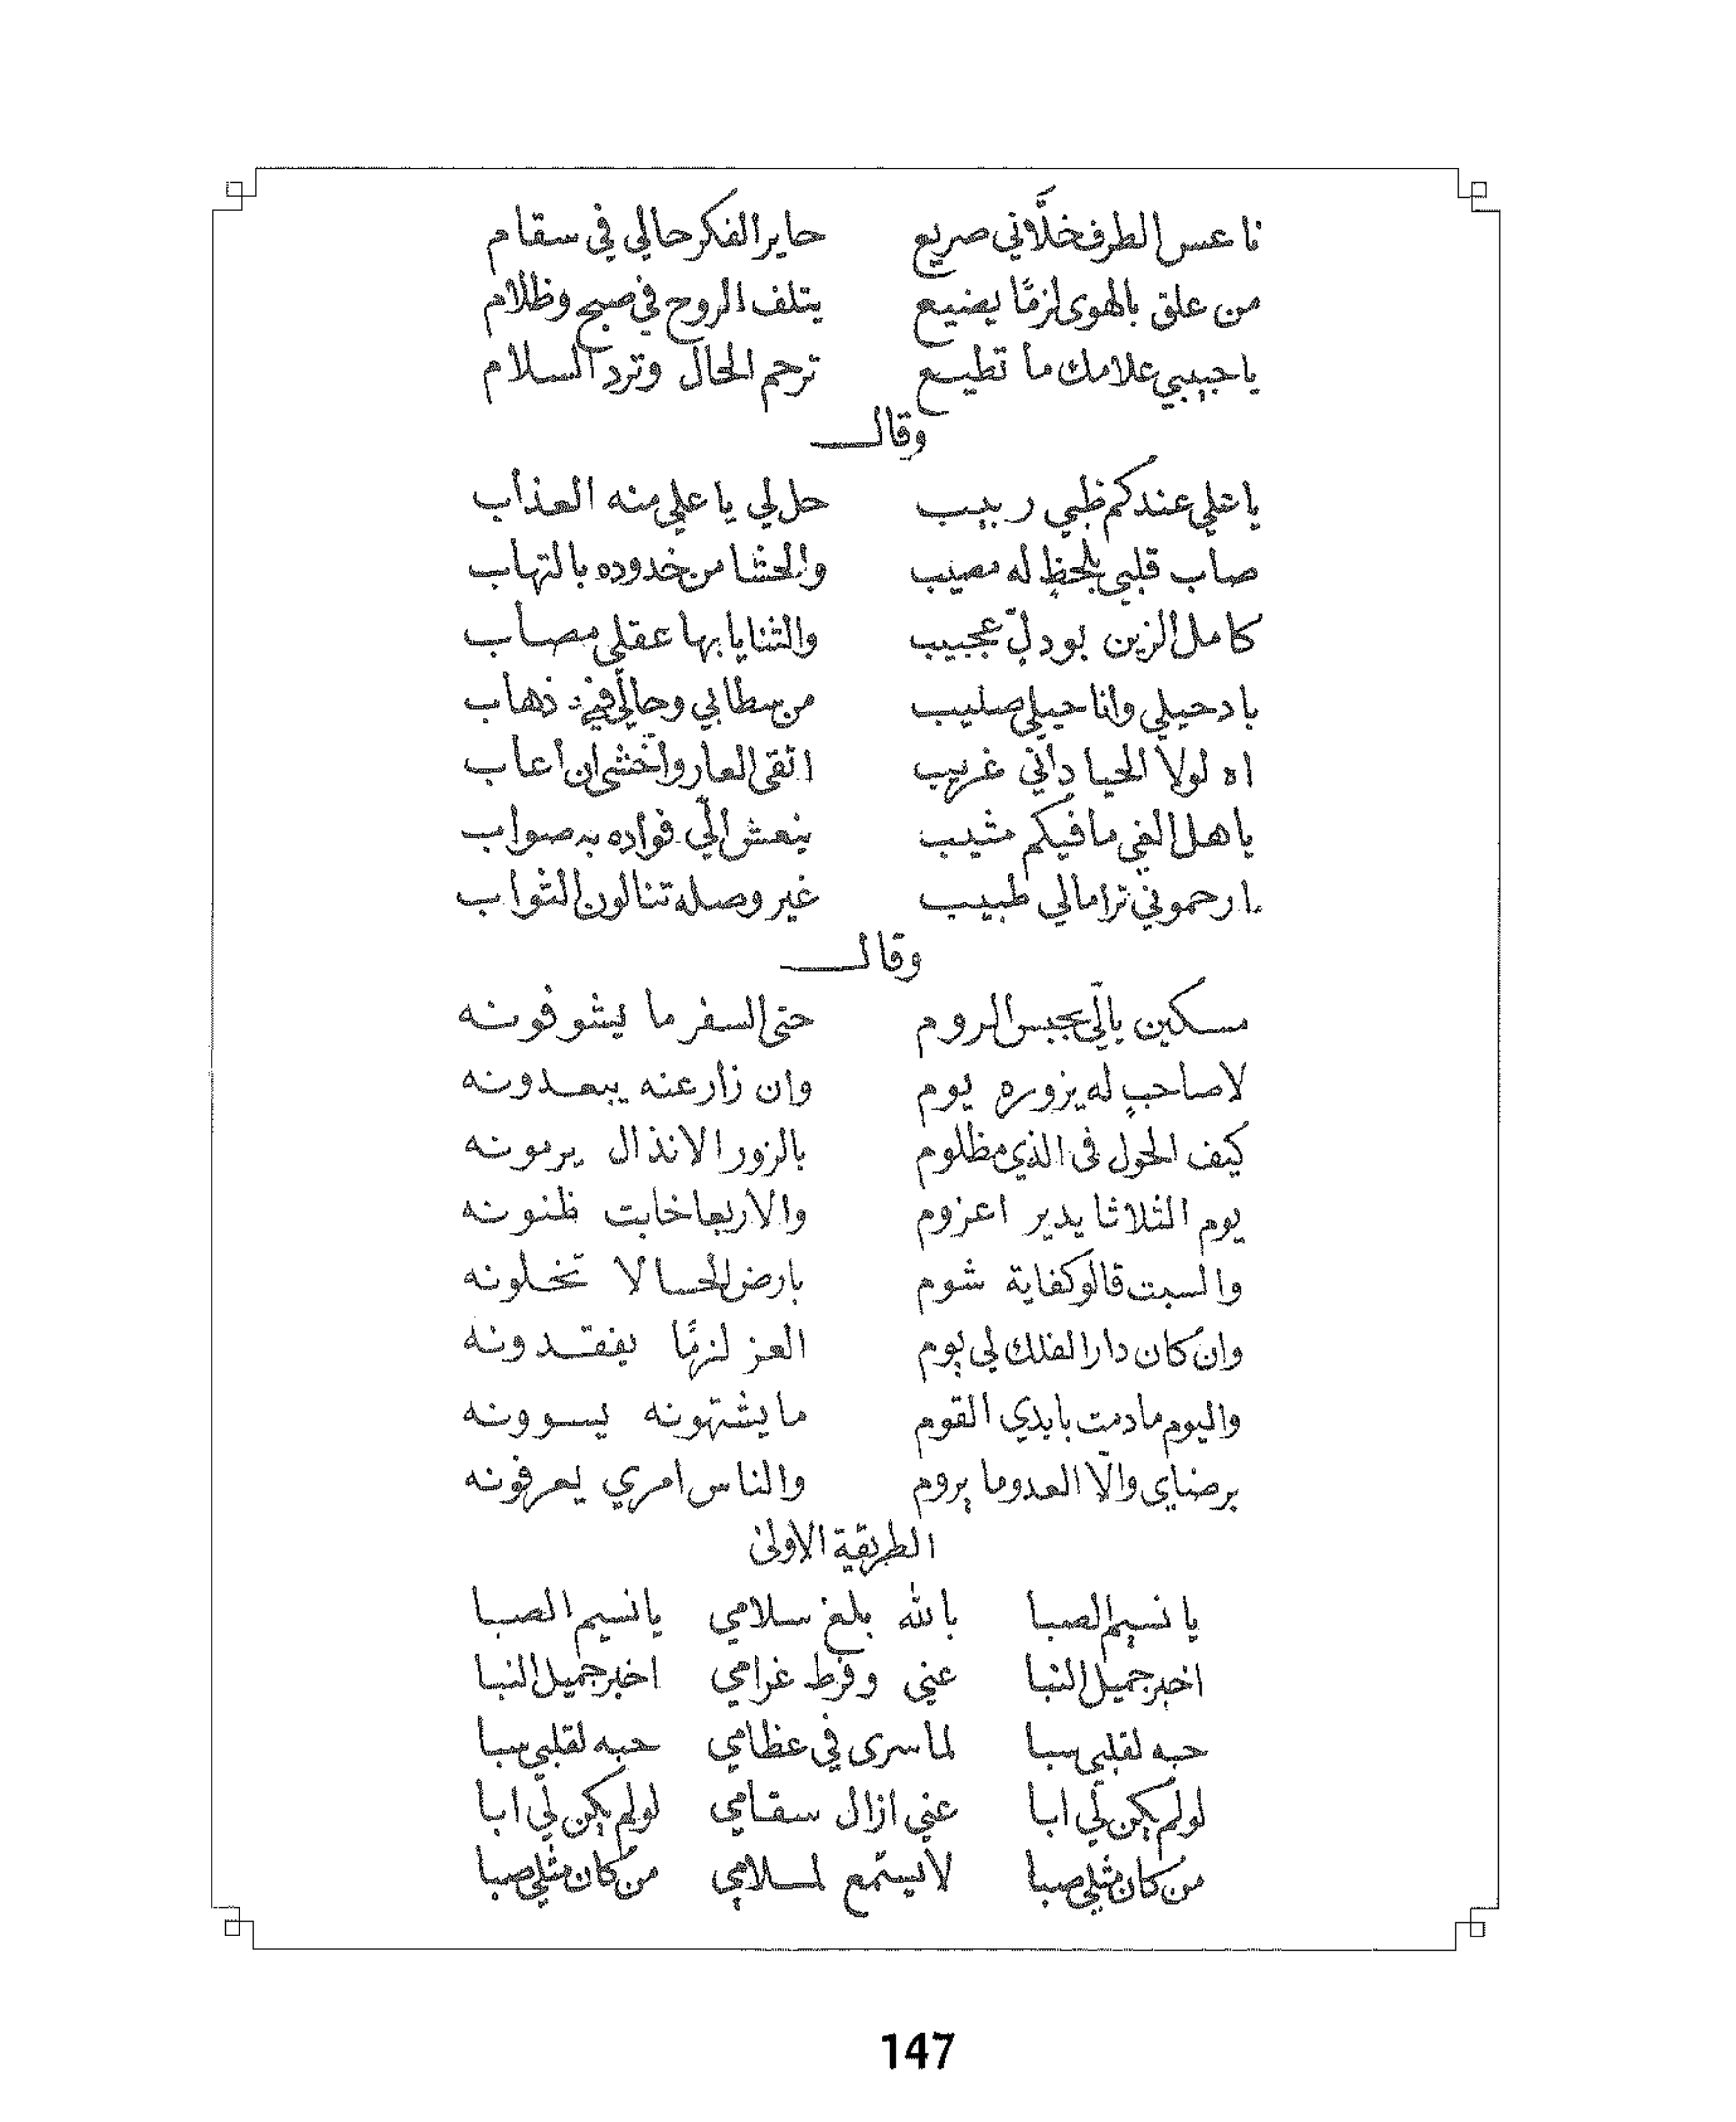 ناعس الطرف خلَّاني صريع حاير الفكر حالي في سقام
من علق بالهوى لزمًا يضيع يتلف الروح في صبح وظلام
يا حبيبي علامك ما تطيع ترحم الحال وترد السلام
وقال
يا علي عندكم ظبي ربيب حل لي يا علي منه العذاب
صاب قلبي بلحظٍ له مصيب والحشا من خدوده بالتهاب
كامل الزين بو دلٍّ عجيب والثنايا بها عقلي مصاب
باد حيلي وانا حيلي صليب من سطا بي وحالي في ذهاب
اه لولا الحيا داني غريب اتقى العار واخشى ان اعاب
يا هل الغي ما فيكم مثيب ينعش الّي فواده به صواب
ارحموني ترا مالي طبيب غير وصله تنالون الثواب
وقال
مسكين يالّي بحبس الروم حتى السفر ما يشوفونه
لا صاحبٍ له يزوره يوم وان زار عنه يبعدونه
كيف الحول في الذي مظلوم بالزور الانذال يرمونه
يوم الثلاثا يدير اعزوم والاربعا خابت ظنونه
والسبت قالو كفاية شوم بارض الحسا لا تخلونه
وان كان دار الفلك لي يوم العز لزمًا يفقدونه
واليوم ما دمت بايدي القوم ما يشتهونه يسوونه
برضاي والّا العدو ما يروم والناس امري يعرفونه
الطريقية الاولى
يا نسيم الصبا بالله بلغ سلامي يا نسيم الصبا
اخبر جميل النبا عني وفرط غرامي اخبر جميل النبا
حبه لقلبي سبا لما سرى في عظامي حبه لقلبي سبا
لو لم يكن لي ابا عني ازال سقامي لو لم يكن لي ابا
من كان مثلي صبا لا يستمع لملامي من كان مثلي صبا
147